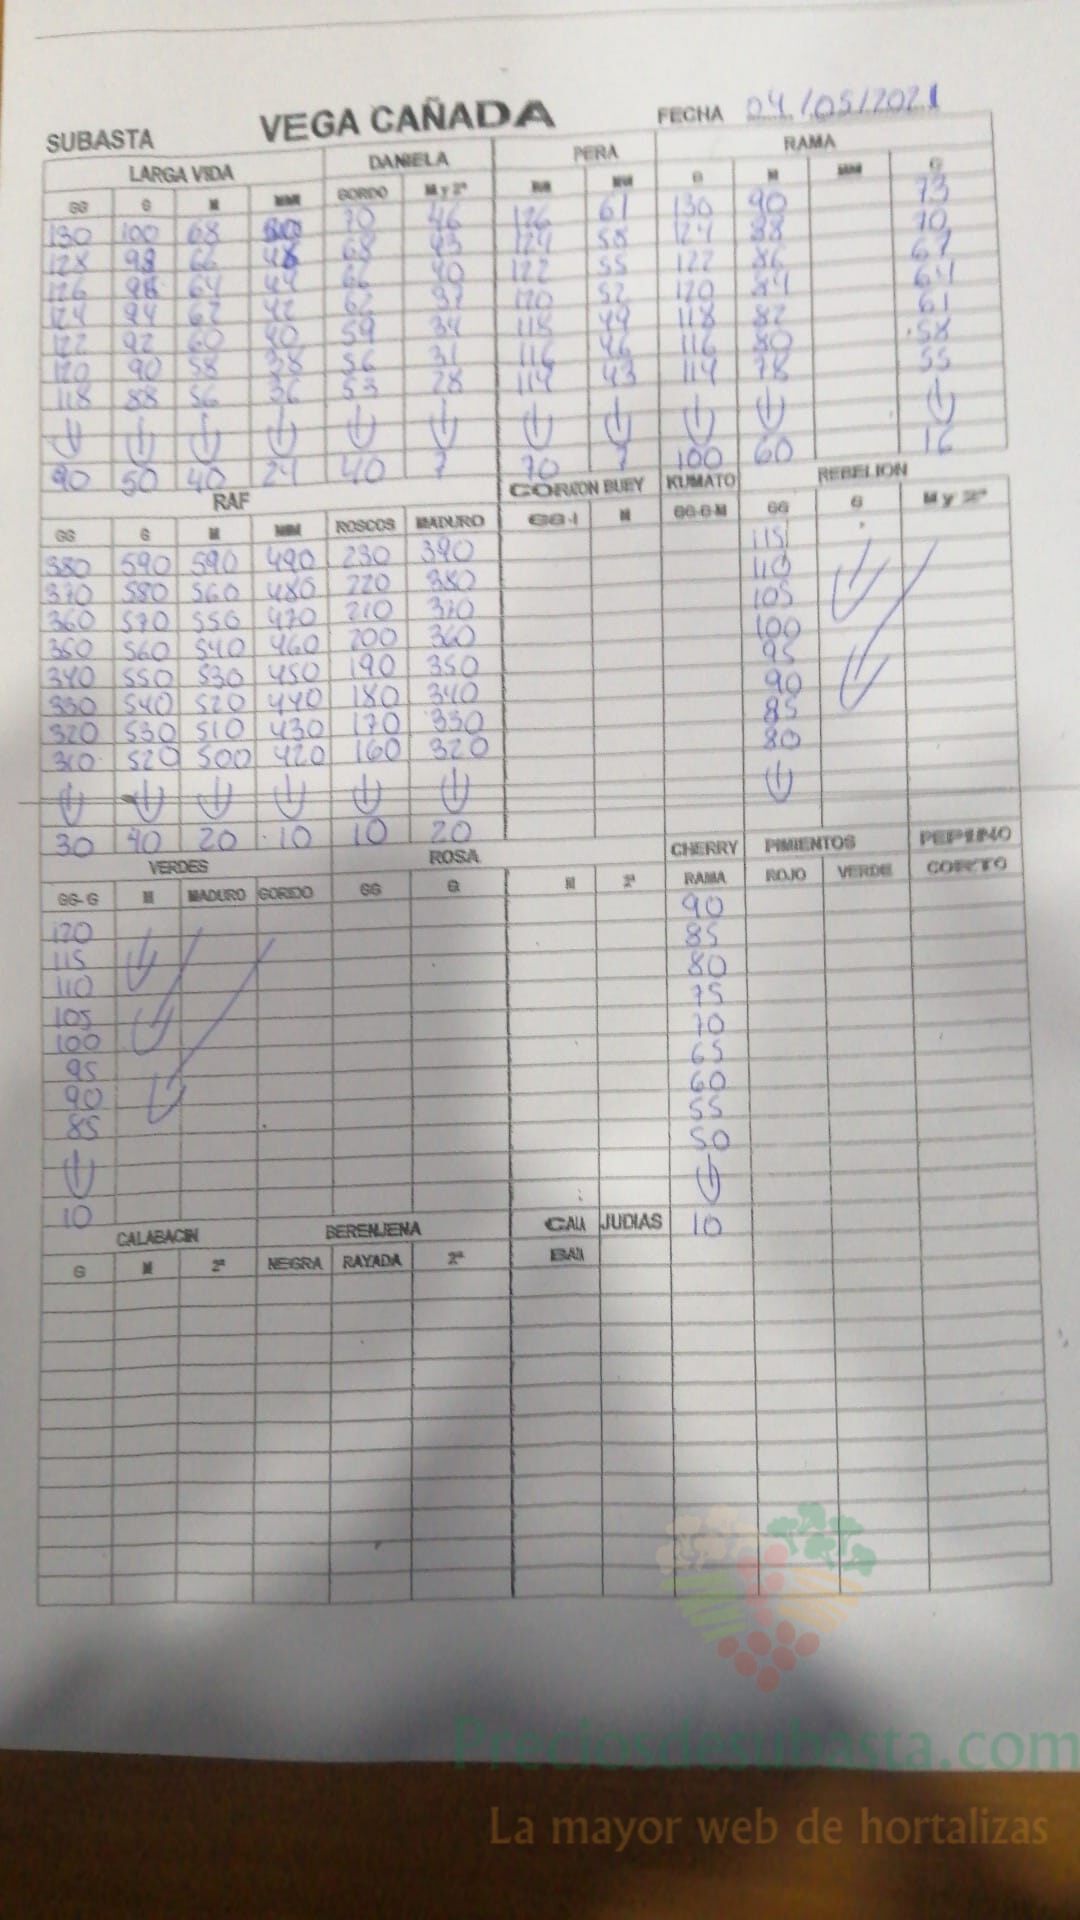 SUBASTA VEGA CAÑADA FECHA 04/05/2021
LARGA VIDA DANIELA PERA RAMA
GG G M MM GORDO M y 2ª G M MM G
130 100 68 70 46 126 61 130 90 73
128 98 66 48 68 43 124 58 124 88 70
126 96 64 44 66 40 122 55 122 86 67
124 94 62 42 62 37 120 52 120 84 64
122 92 60 40 59 34 118 49 118 82 61
120 90 58 38 56 31 116 46 116 80 58
118 88 56 36 53 28 114 43 114 78 55
90 50 40 24 40 7 70 7 100 60 16
RAF CORAZON BUEY KUMATO REBELION
GG G M MM ROSCOS MADURO GG-1 M GG-G-M GG G M y 2ª
380 590 590 490 230 390 115
370 580 560 480 220 380 110
360 570 550 470 210 370 105
350 560 540 460 200 360 100
340 550 530 450 190 350 95
330 540 520 440 180 340 90
320 530 510 430 170 330 85
310 520 500 420 160 320 80
30 40 20 10 10 20
VERDES ROSA CHERRY PIMIENTOS PEPINO
GG-G M MADURO GORDO GG G M 2ª RAMA ROJO VERDE CORTO
120 90
115 85
110 80
105 75
100 70
95 65
90 60
85 55
50
10 10
CALABACIN BERENJENA CALA JUDIAS
G M 2ª NEGRA RAYADA 2ª
Preciosdesubasta.com
La mayor web de hortalizas